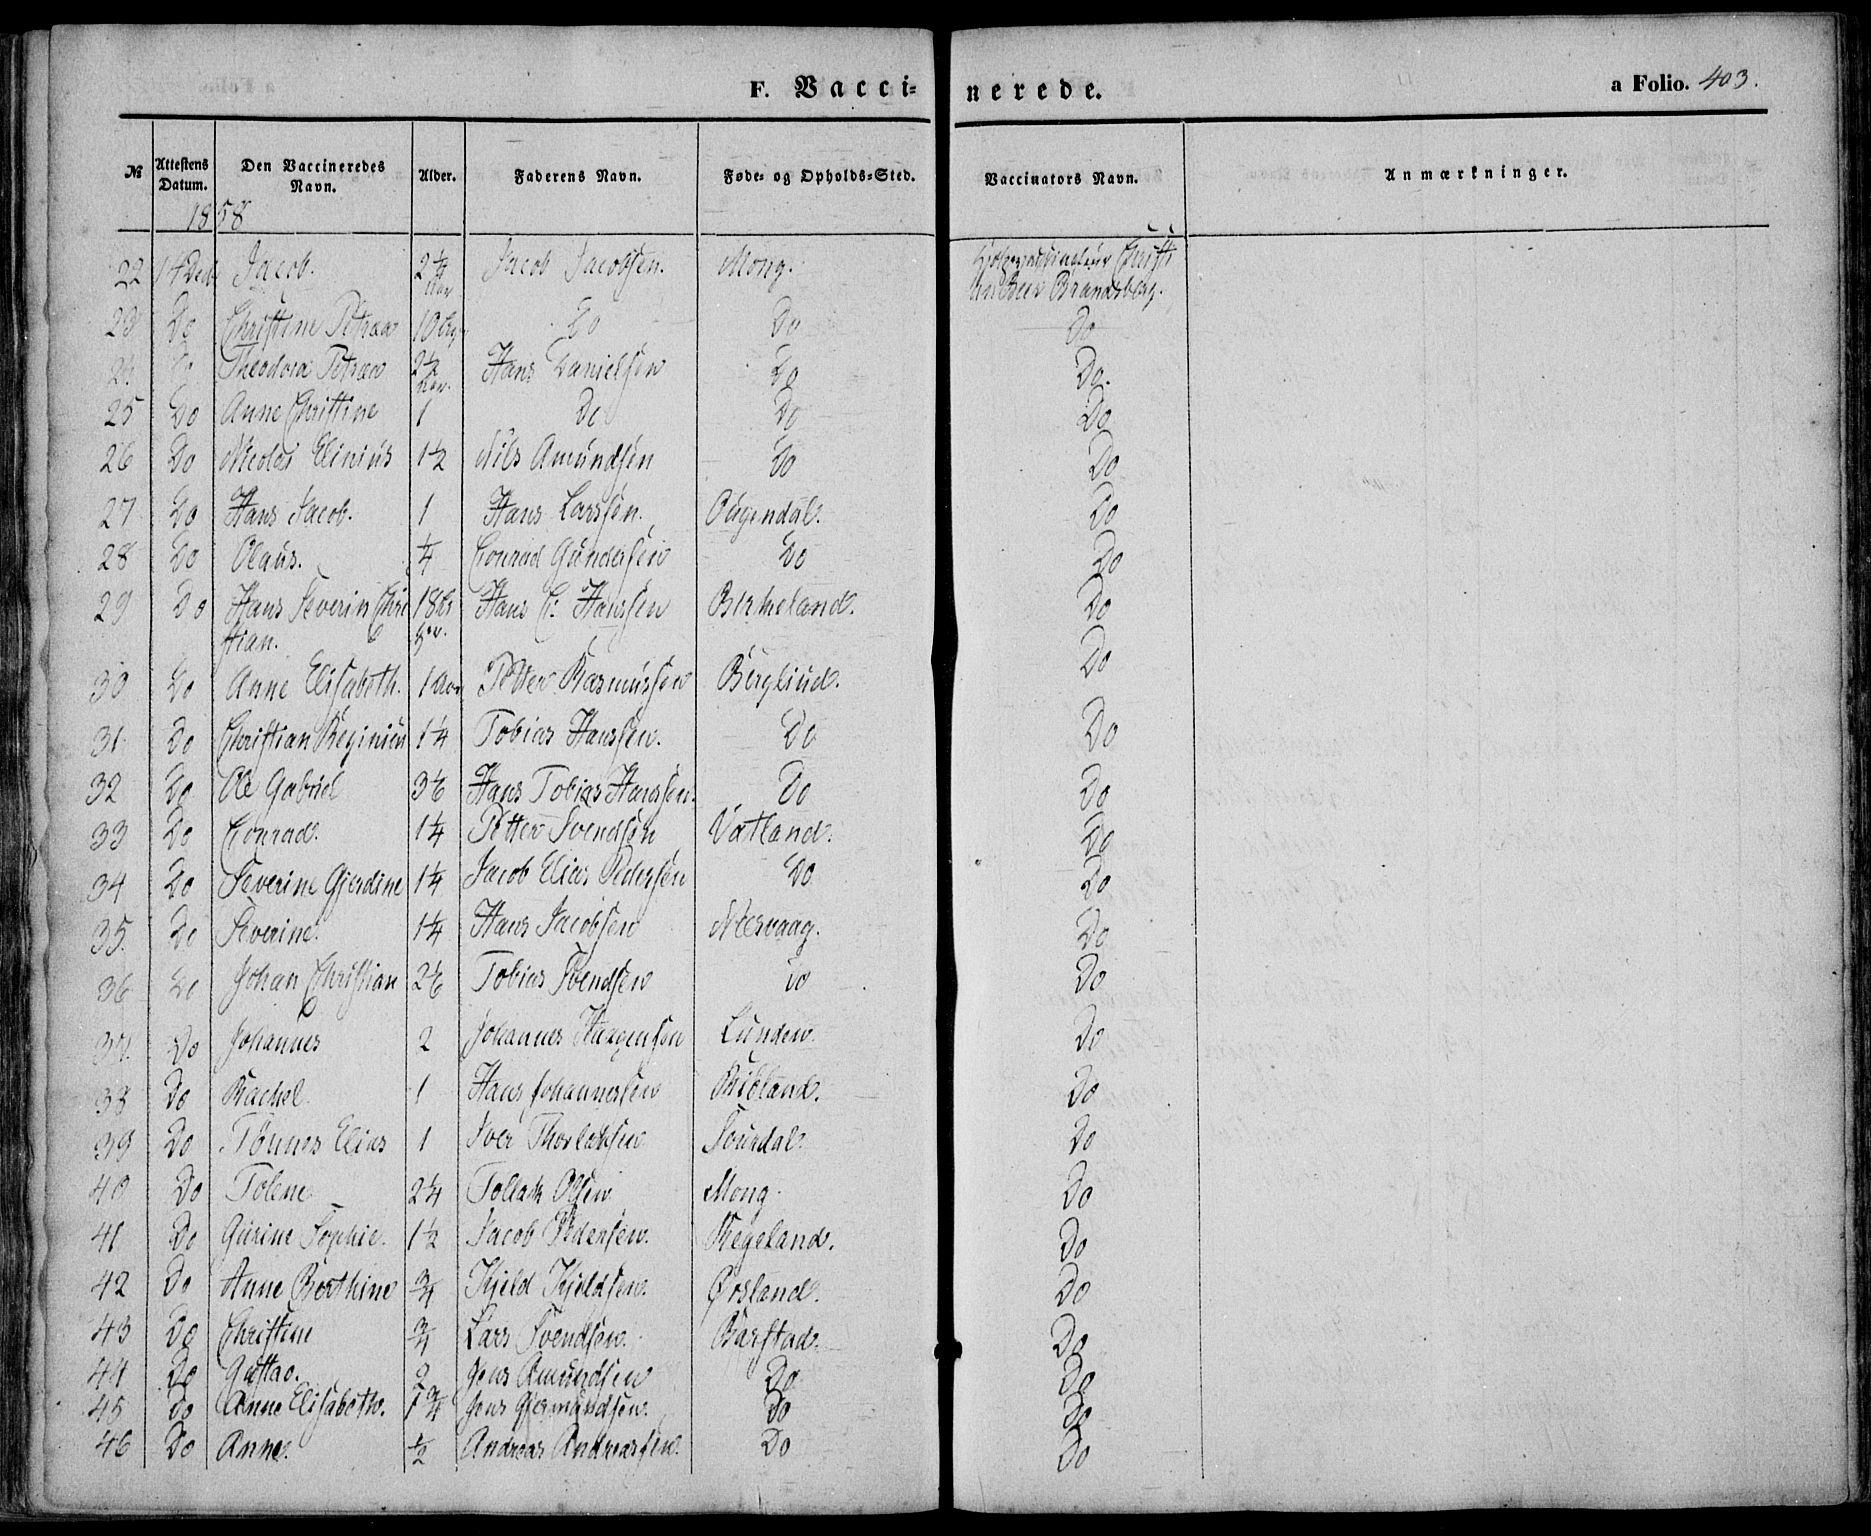 F. Vacci- nerede. a Folio. 403.
№ Attestens Datum. Den Vaccineredes Navn. Alder. Faderens Navn. Føde- og Opholds-Sted. Vaccinators Navn. Anmærkninger.
1858
22 14 Decb Jacob. 2 1/2 Aar Jacob Jacobsen. Mong. Christi
an Beer Brandsberg.
23 Do Christine Petrea 10 Do Do Do
24 Do Theodora Petrea 2 1/2 Aar. Hans Danielsen Do Do.
25 Do Anne Christine 1 Do Do Do
26 Do Nicolai Elinius 1 1/2 Nils Amundsen Do Do
27 Do Hans Jacob. 1 Hans Larsen. Øugendal. Do
28 Do Olaus. 1/4 Conrad Gundersen Do Do
29 Do Hans Severin Chri 18 Hans C. Hansen Birkeland. Do
stian. Do
30 Do Anne Elisabeth. 1 Aar Petter Rasmussen Bergliud.
31 Do Christian Reginius 1 1/4 Tobias Hansen. Do Do
32 Do Ole Gabriel 3 1/6 Hans Tobias Hanssen. Do Do
33 Do Conrad. 1 1/4 Petter Svendsen Vatland. Do
34 Do Severine Gjerdine 1 1/4 Jacob Elias Pedersen Do Do
35. Do Severine. 1 1/4 Hans Jacobsen Nesvaag. Do
36 Do Johan Christian 2 1/6 Tobias Svendsen Do Do
37. Do Johannes 2 Johannes Lunden. Do
38 Do Rachel 1 Hans Johannessen Midland. Do
39 Do Tønnes Elias 1 Iver Thorlaksen Sourdal. Do
40 Do Tolene 2 1/4 Tollak Olsen Mong. Do
41 Do Gurine Sophie. 1 1/2 Jacob Pedersen. Regeland. Do
42 Do Anne Berthine 3/4 Kjeld Kjeldsen. Ørsland. Do
43 Do Christine 3/4 Lars Svendsen. Barstad. Do
44 Do Gustav. 2 Jens Amundsen Do Do
45 Do Anne Elisabeth. 1 3/4 Jens Germundsen. Do Do
46 Do Anne. 1/2 Andreas Andreassen. Do Do